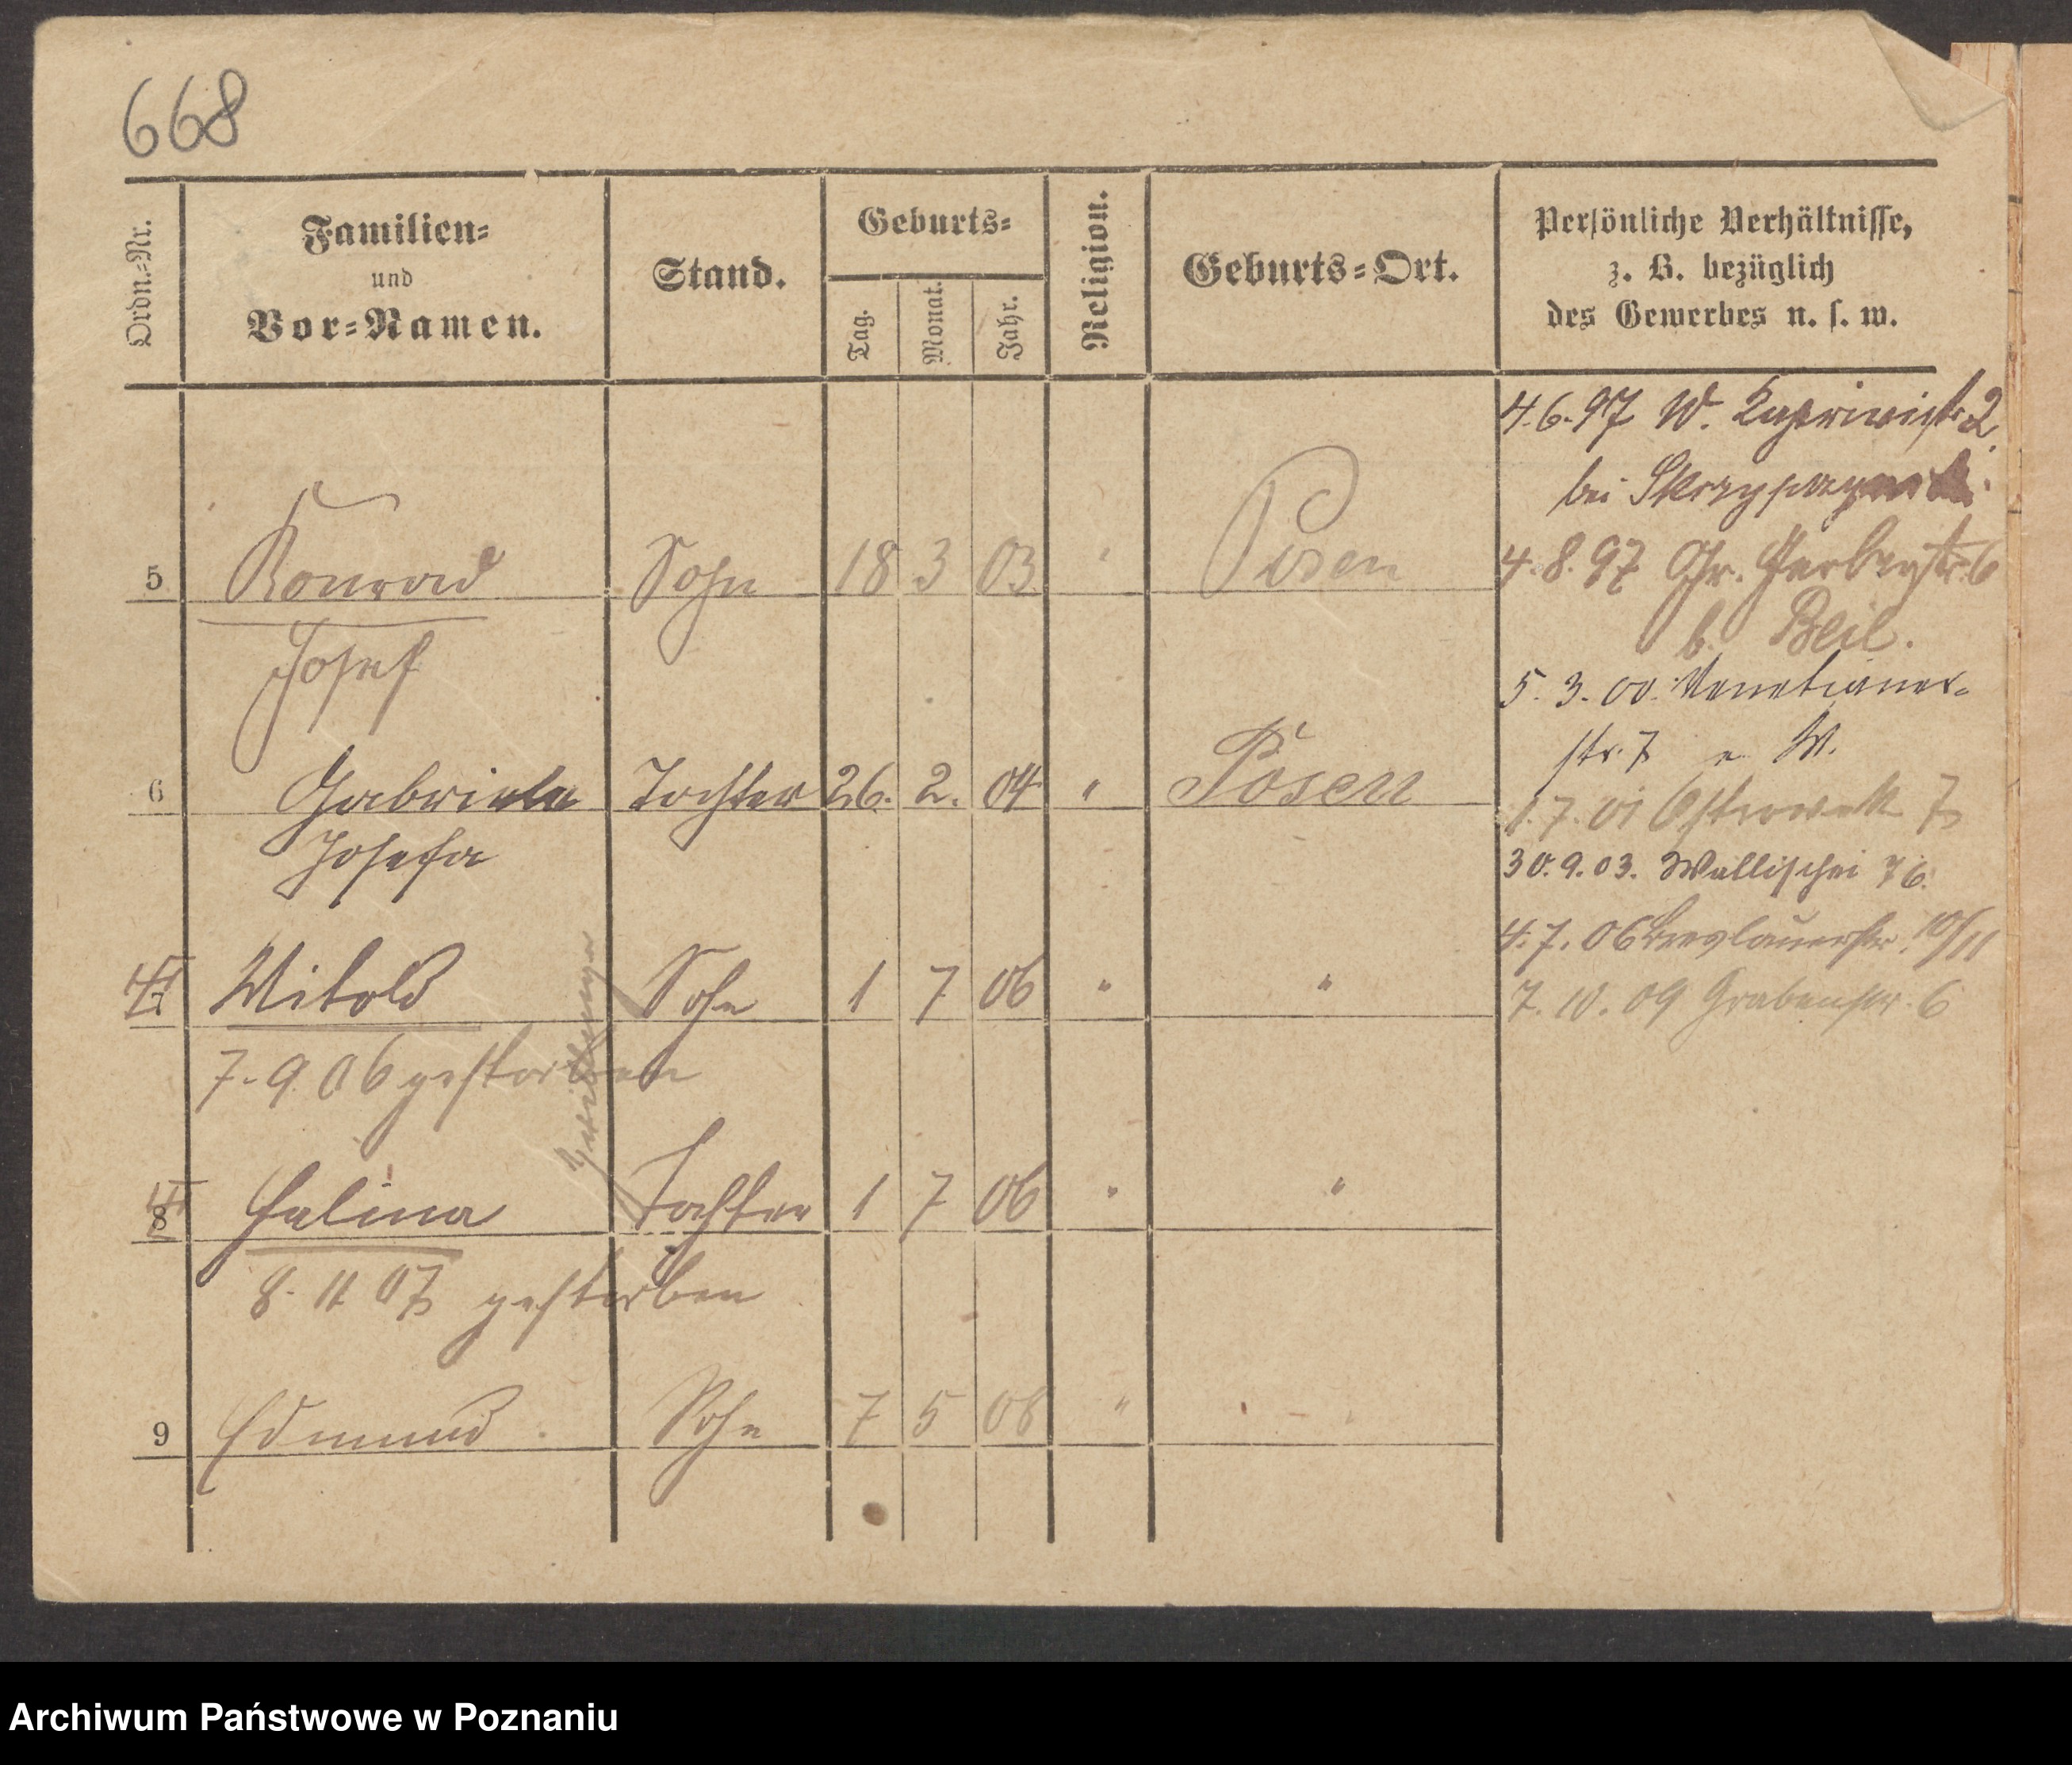 668
Ordn.=Nr.
Familien=
und
Vor=Namen.
Stand.
Geburts=
Tag.
Monat.
Jahr.
Religion.
Geburts=Ort.
Persönliche Verhältnisse,
z. B. bezüglich
des Gewerbes u. s. w.
4.6.97 W. Kapriviestr. 2
bei
5 Konrad Sohn 18 3 03 " Posen
Josef
4.8.97 Gr. Gerberstr. 6
b. Beil.
5. 3. 00. Venetianer-
str. 7 e. W.
6 Gabriela Tochter 26. 2. 04 " Posen
Josefa
1. 7. 01 Ostrowek 7
30. 9. 03. Wallischei 76.
4. 7. 06 Breslauerstr. 10/11
7. 10. 09 Grabenstr. 6
7 Witold Sohn 1 7 06 " "
7. 9. 06 gestorben
Zwillinge
8 Halina Tochter 1 7 06 " "
8. 11 07 gestorben
9 Edmund Sohn 7 5 08 " "
Archiwum Państwowe w Poznaniu